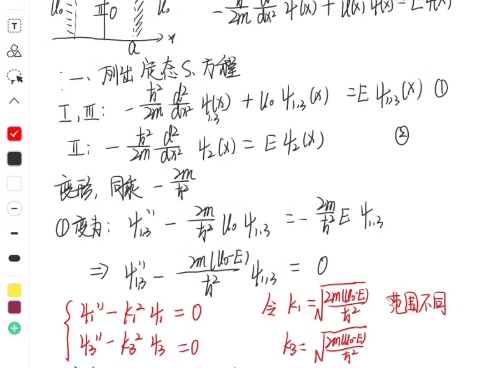 U₀ Ⅱ 0 U₀ -ħ²/2m d²/dx² ψ(x) + U(x) ψ(x) = Eψ(x)
a x
一、列出定态S.方程
Ⅰ,Ⅲ: -ħ²/2m d²/dx² ψ₁,₃(x) + U₀ ψ₁,₃(x) = Eψ₁,₃(x) ①
Ⅱ: -ħ²/2m d²/dx² ψ₂(x) = Eψ₂(x) ②
变形,同乘 -2m/ħ²
①变为: ψ₁,₃'' - 2m/ħ² U₀ ψ₁,₃ = -2m/ħ² E ψ₁,₃
⇒ ψ₁,₃'' - 2m(U₀-E)/ħ² ψ₁,₃ = 0
ψ₁'' - k₁² ψ₁ = 0 令 k₁ = √(2m(U₀-E)/ħ²) 范围不同
ψ₃'' - k₃² ψ₃ = 0 k₃ = √(2m(U₀-E)/ħ²)